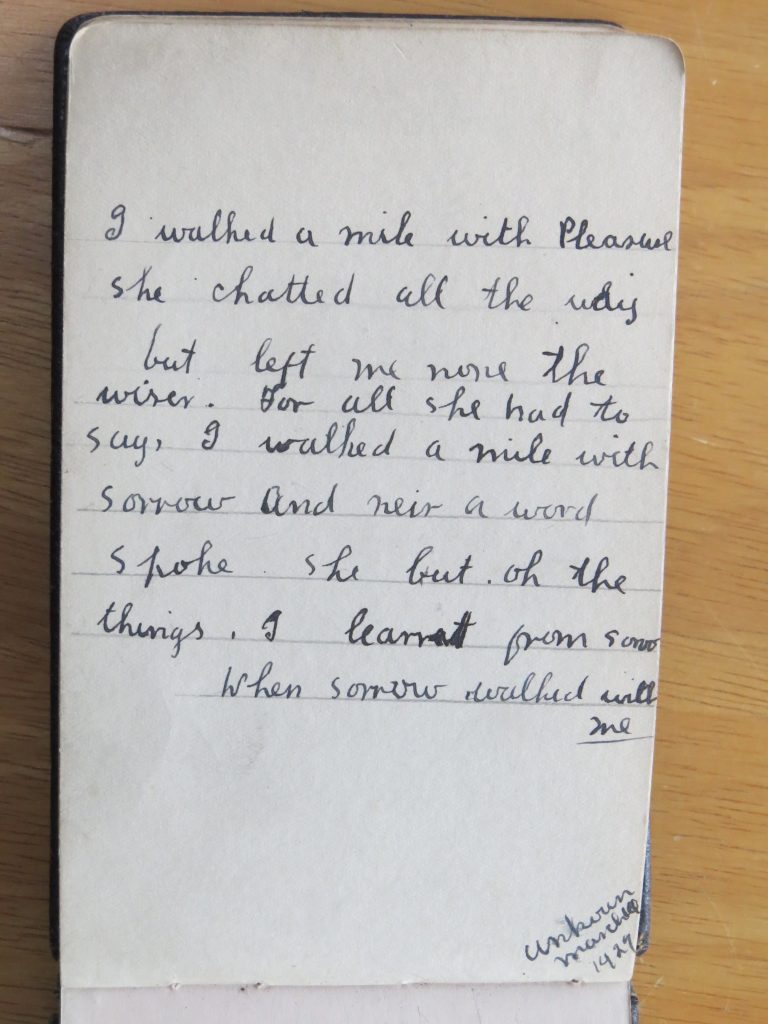 I walked a mile with Pleasure
she chatted all the way
but left me none the
wiser. For all she had to
say, I walked a mile with
sorrow And neir a word
spoke she but. oh the
things. I learnt from sorrow
When sorrow walked with
me
unkown
1929